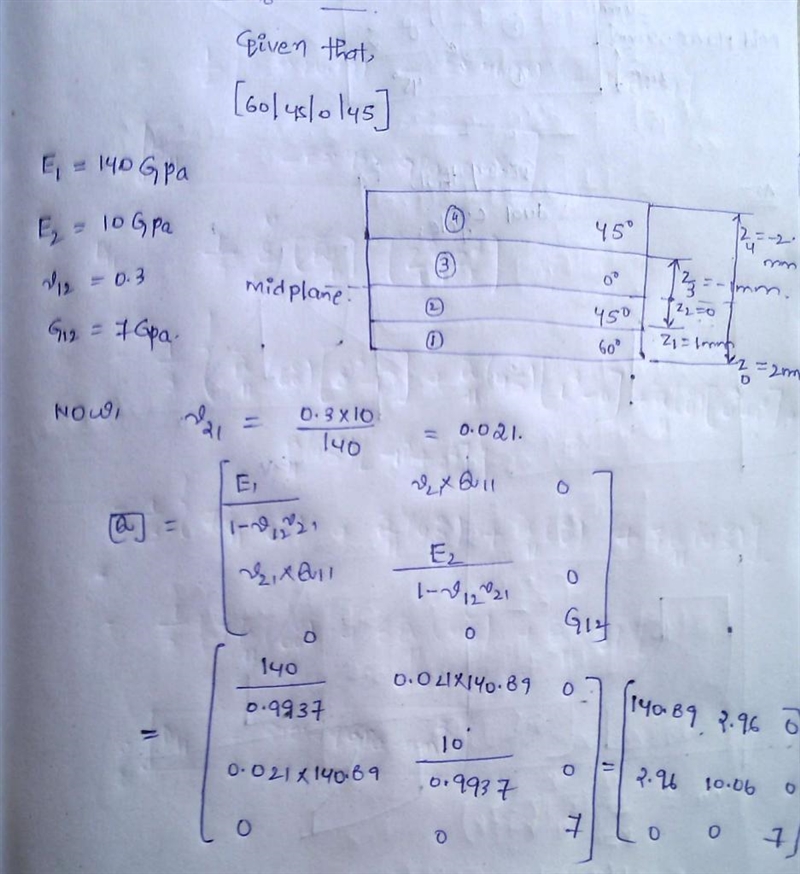 Given that,
[60/45/0/45]
E1 = 140 Gpa
E2 = 10 Gpa
ν12 = 0.3
G12 = 7 Gpa.
④ 45°
③ 0°
midplane.
② 45°
① 60°
z4 = -2 mm
z3 = -1 mm.
z2 = 0
z1 = 1 mm
z0 = 2m
Now, ν21 = 0.3 x 10 / 140 = 0.021.
[Q] = [ E1 / 1-ν12ν21 ν21 x Q11 0
ν21 x Q11 E2 / 1-ν12ν21 0
0 0 G12 ]
= [ 140 / 0.9937 0.021 x 140.89 0
0.021 x 140.89 10 / 0.9937 0
0 0 7 ]
= [ 140.89 2.96 0
2.96 10.06 0
0 0 7 ]